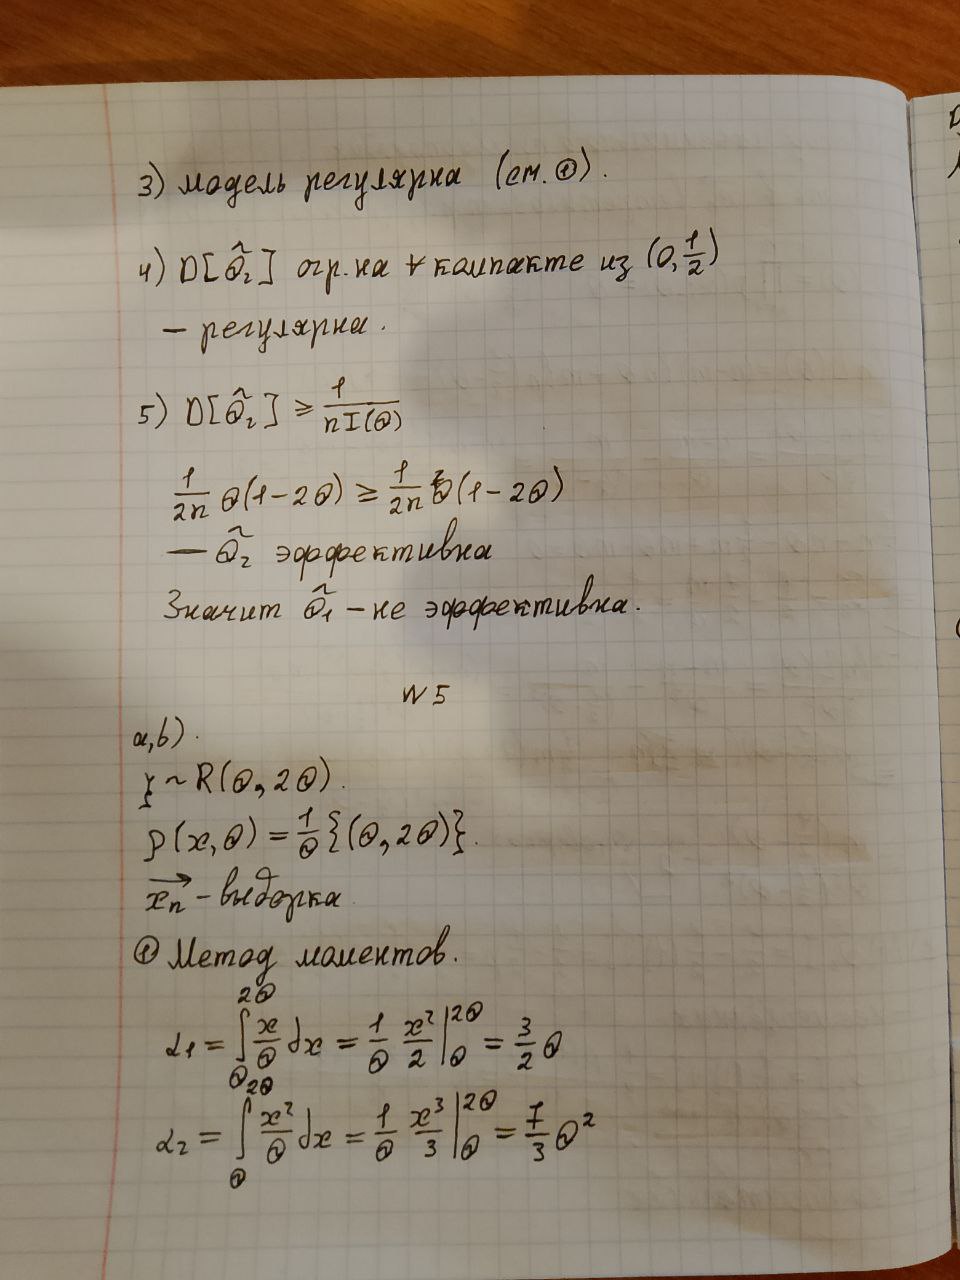 3) модель регулярна (см. ①).
4) D[θ̃₂] огр. на ∀ компакте из (0, 1/2)
— регулярна.
5) D[θ̃₂] ≥ 1/(nI(θ))
1/(2n) θ(1-2θ) ≥ 1/(2n) θ(1-2θ)
— θ̃₂ эффективна
Значит θ̃₁ — не эффективна.
N 5
a, b).
ξ ~ R(θ, 2θ).
ρ(x, θ) = 1/θ {(θ, 2θ)}.
x⃗ₙ - выборка
① Метод моментов.
α₁ = ∫_θ^{2θ} x/θ dx = 1/θ x²/2 |_θ^{2θ} = 3/2 θ
α₂ = ∫_θ^{2θ} x²/θ dx = 1/θ x³/3 |_θ^{2θ} = 7/3 θ²